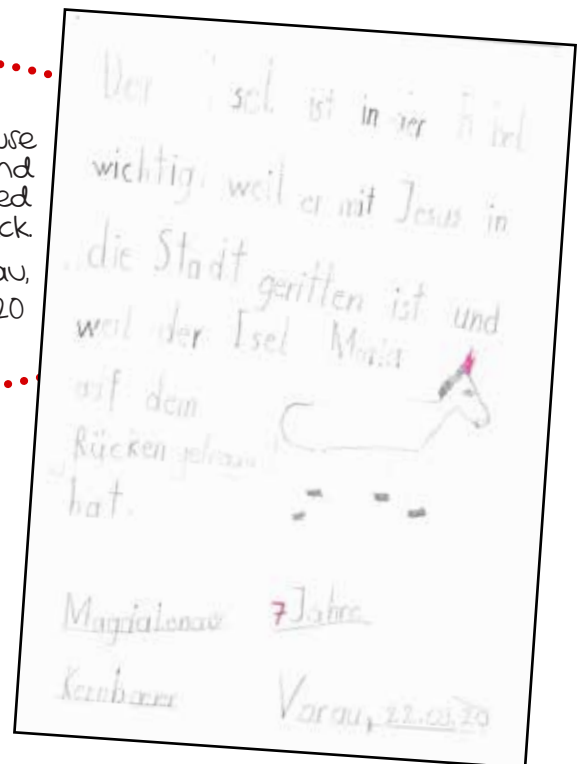 use
nd
ed
ck.
au,
20
Der sel ist in der Bibel
wichtig, weil er mit Jesus in
die Stadt geritten ist und
weil der Isel Maria
auf dem
Rücken getragen
hat.
Magdalena 7 Jahre
Vorau, 22.03.20